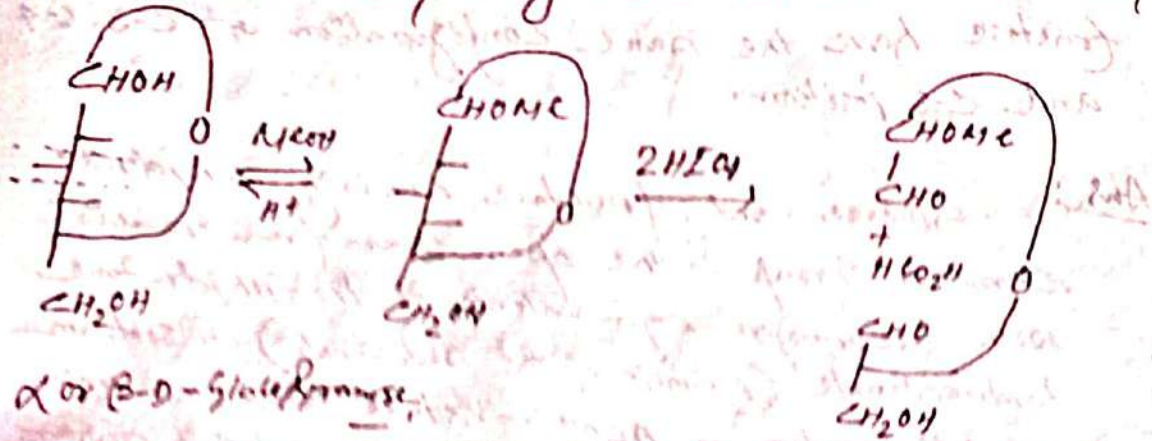 CHOH
O
MeOH
H+
CH2OH
α or β-D-Glucopyranose
CHOMe
O
CH2OH
2HIO4
CHOMe
CHO
+
HCO2H
O
CHO
CH2OH